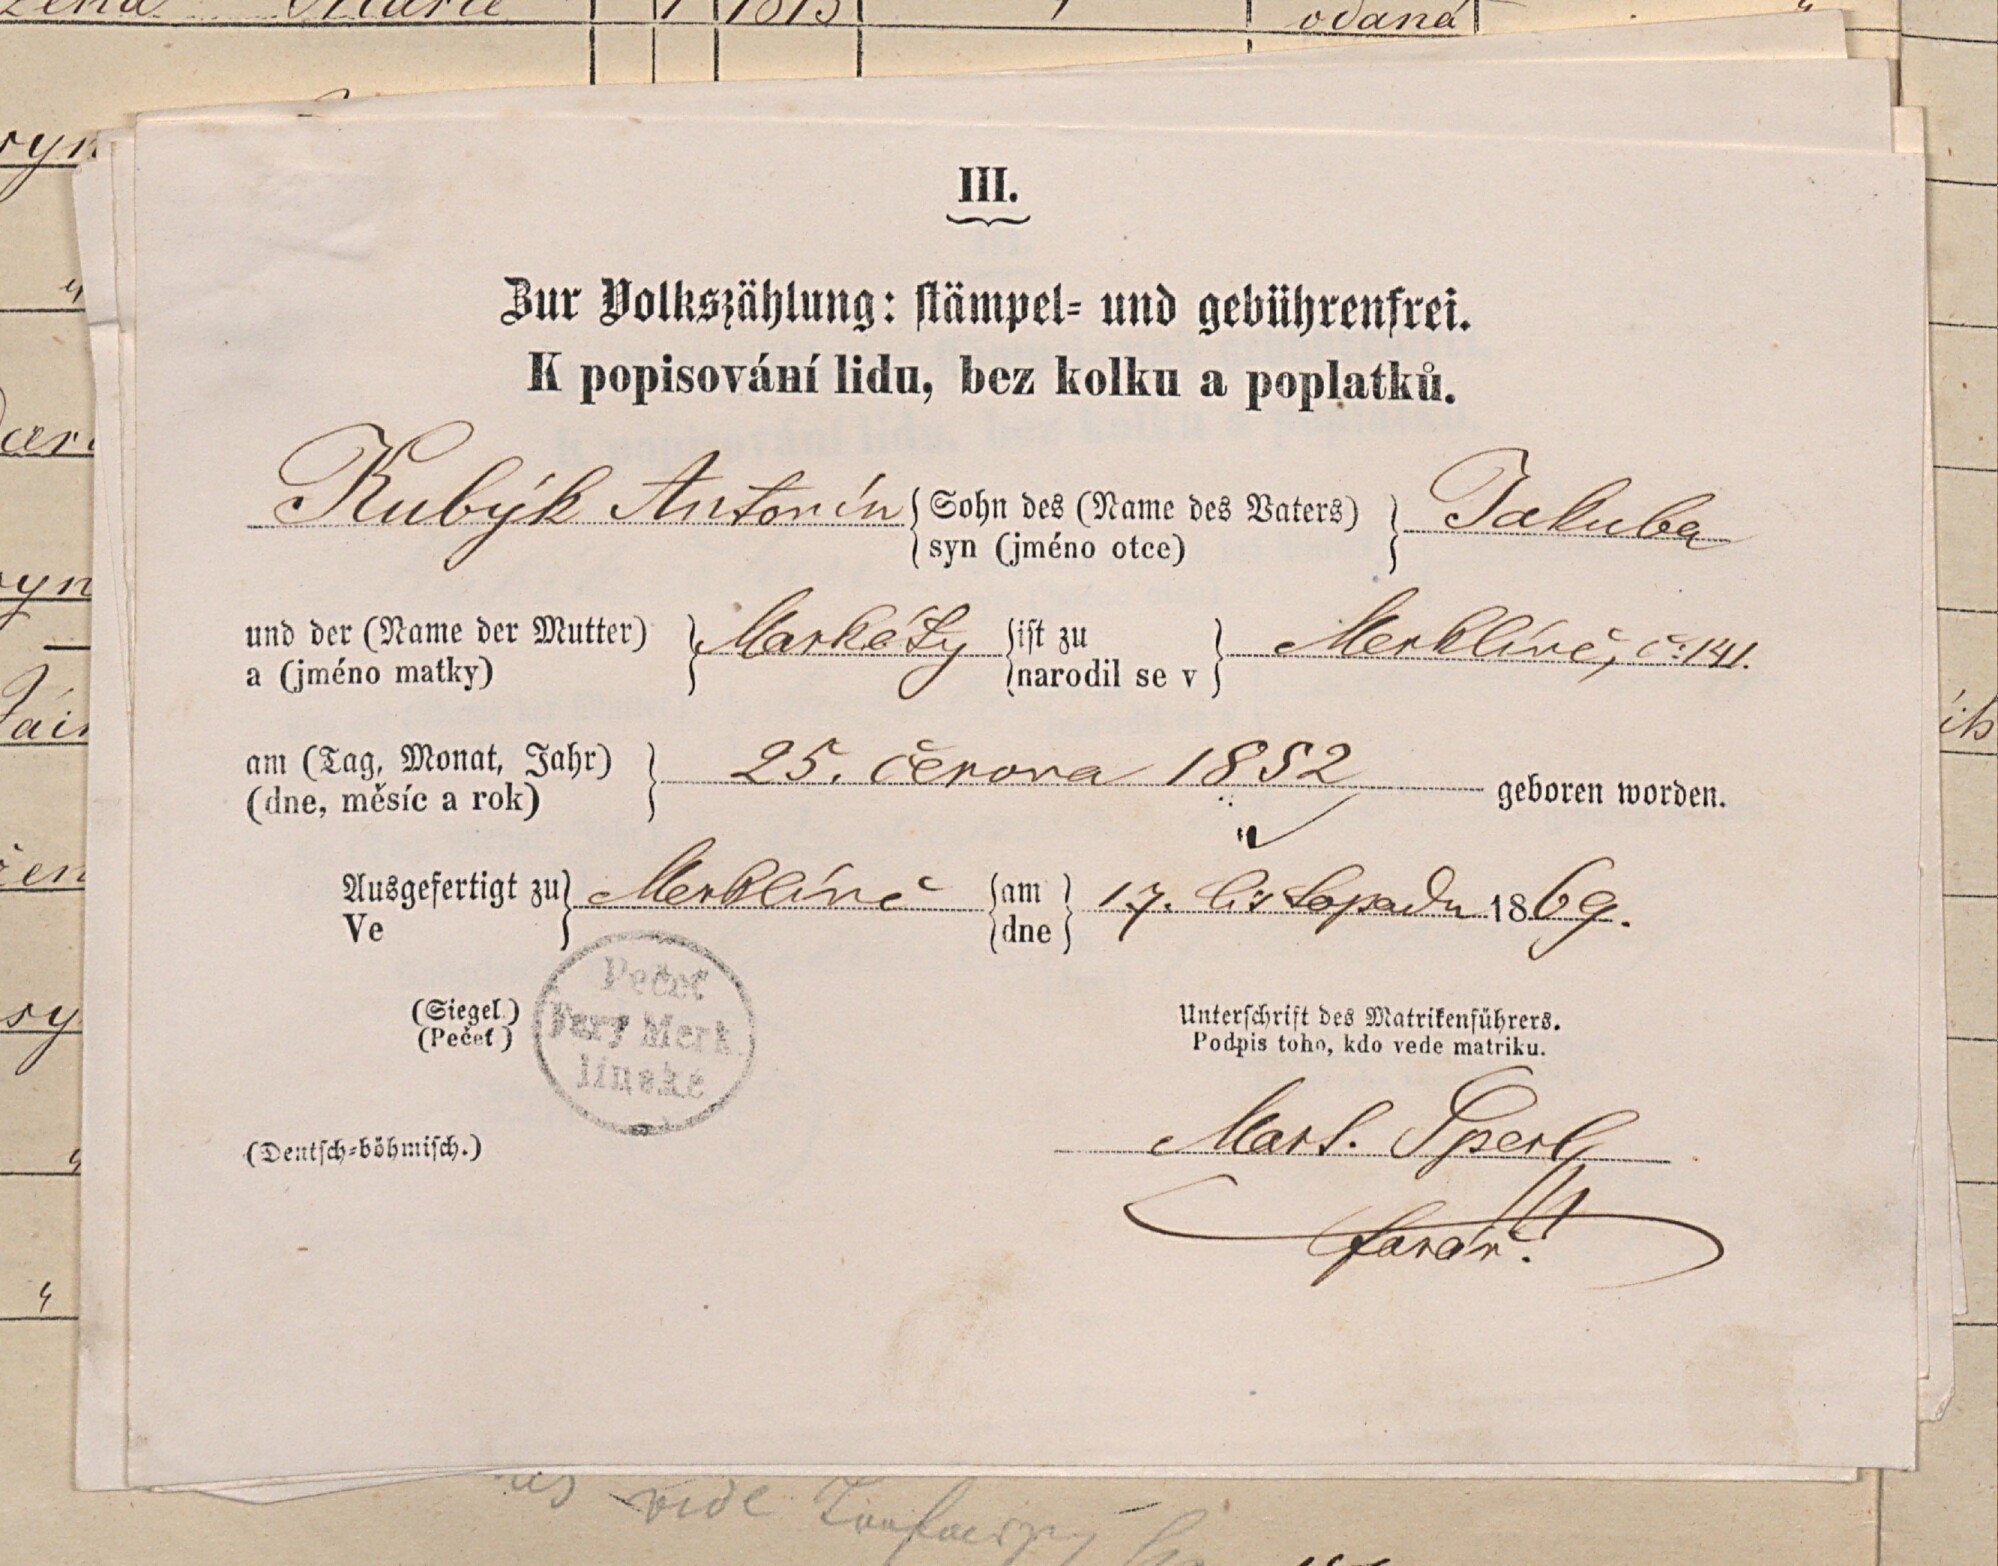 Marie 1 1813
odaná
III.
Zur Volkszählung: stämpel- und gebührenfrei.
K popisování lidu, bez kolku a poplatků.
Kubýk Antonín { Sohn des (Name des Vaters) } Jakuba
syn (jméno otce)
und der (Name der Mutter) } Markéty { ist zu } Merklíně, č. 141.
a (jméno matky) narodil se v
am (Tag, Monat, Jahr) } 25. června 1852 geboren worden.
(dne, měsíc a rok)
Ausgefertigt zu } Merklíně { am } 17. listopadu 1869.
Ve dne
Pečeť
Fary Merk
línské
(Siegel.)
(Pečeť)
Unterschrift des Matrikenführers.
Podpis toho, kdo vede matriku.
(Deutsch-böhmisch.)
Mart. Šperl
farář.
vide